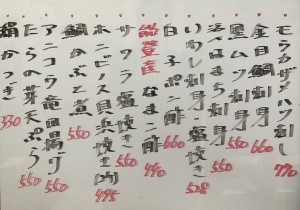 モウカザメハツ刺し 770
金目鯛刺身 660
ムツ刺身 550
いわし刺身 塩焼き 528
白子ポン酢 660
能登産なまこ酢
サワラ塩焼き 550
ホンビノス貝浜焼き 495
鯛かぶと煮 550
アンコウ竜田揚げ 550
たらの芽天ぷら 550
絹かつぎ 330